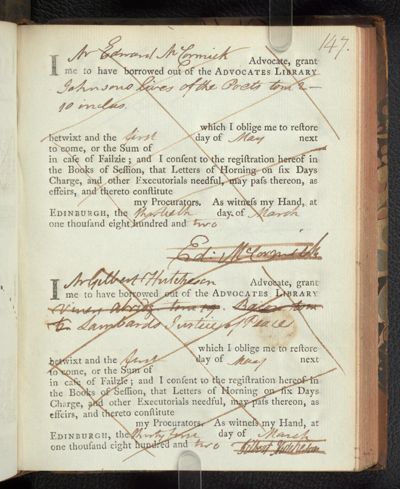 147.
I Mr Edward McCormick Advocate, grant
me to have borrowed out of the ADVOCATES LIBRARY
Johnsons lives of the Poets tom 2-
10 inclus.
betwixt and the first which I oblige me to restore
day of May next
to come, or the Sum of
in case of Failzie; and I consent to the registration hereof in
the Books of Session, that Letters of Horning on six Days
Charge, and other Executorials needful, may pass thereon, as
effeirs, and thereto constitute
my Procurators. As witness my Hand, at
EDINBURGH, the day of March
one thousand eight hundred and two
Ed. McCormick
I Mr Gilbert Hutcheson Advocate, grant
me to have borrowed out of the ADVOCATES LIBRARY
tom
Lambards Justice of Peace
which I oblige me to restore
betwixt and the first day of May next
to come, or the Sum of
in case of Failzie; and I consent to the registration hereof in
the Books of Session, that Letters of Horning on six Days
Charge, and other Executorials needful, may pass thereon, as
effeirs, and thereto constitute
my Procurators. As witness my Hand, at
EDINBURGH, the thirty first day of March
one thousand eight hundred and two Gilbert Hutcheson